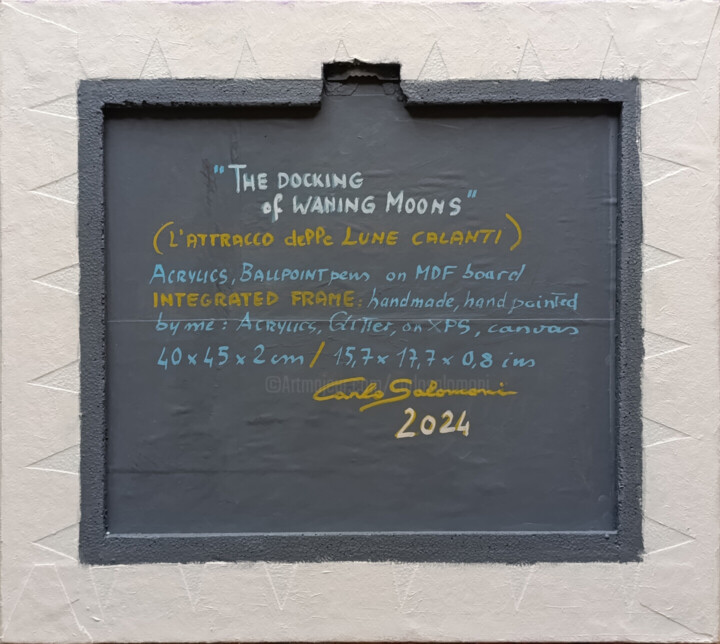 "THE DOCKING
of WANING MOONS"
(L'ATTRACCO delle LUNE CALANTI)
ACRYLICS, BALLPOINT pens on MDF board
INTEGRATED FRAME: handmade, hand painted
by me: ACRYLICS, GLITTER, on XPS, canvas
40 x 45 x 2 cm / 15,7 x 17,7 x 0,8 ins
Carlo Salomoni
2024